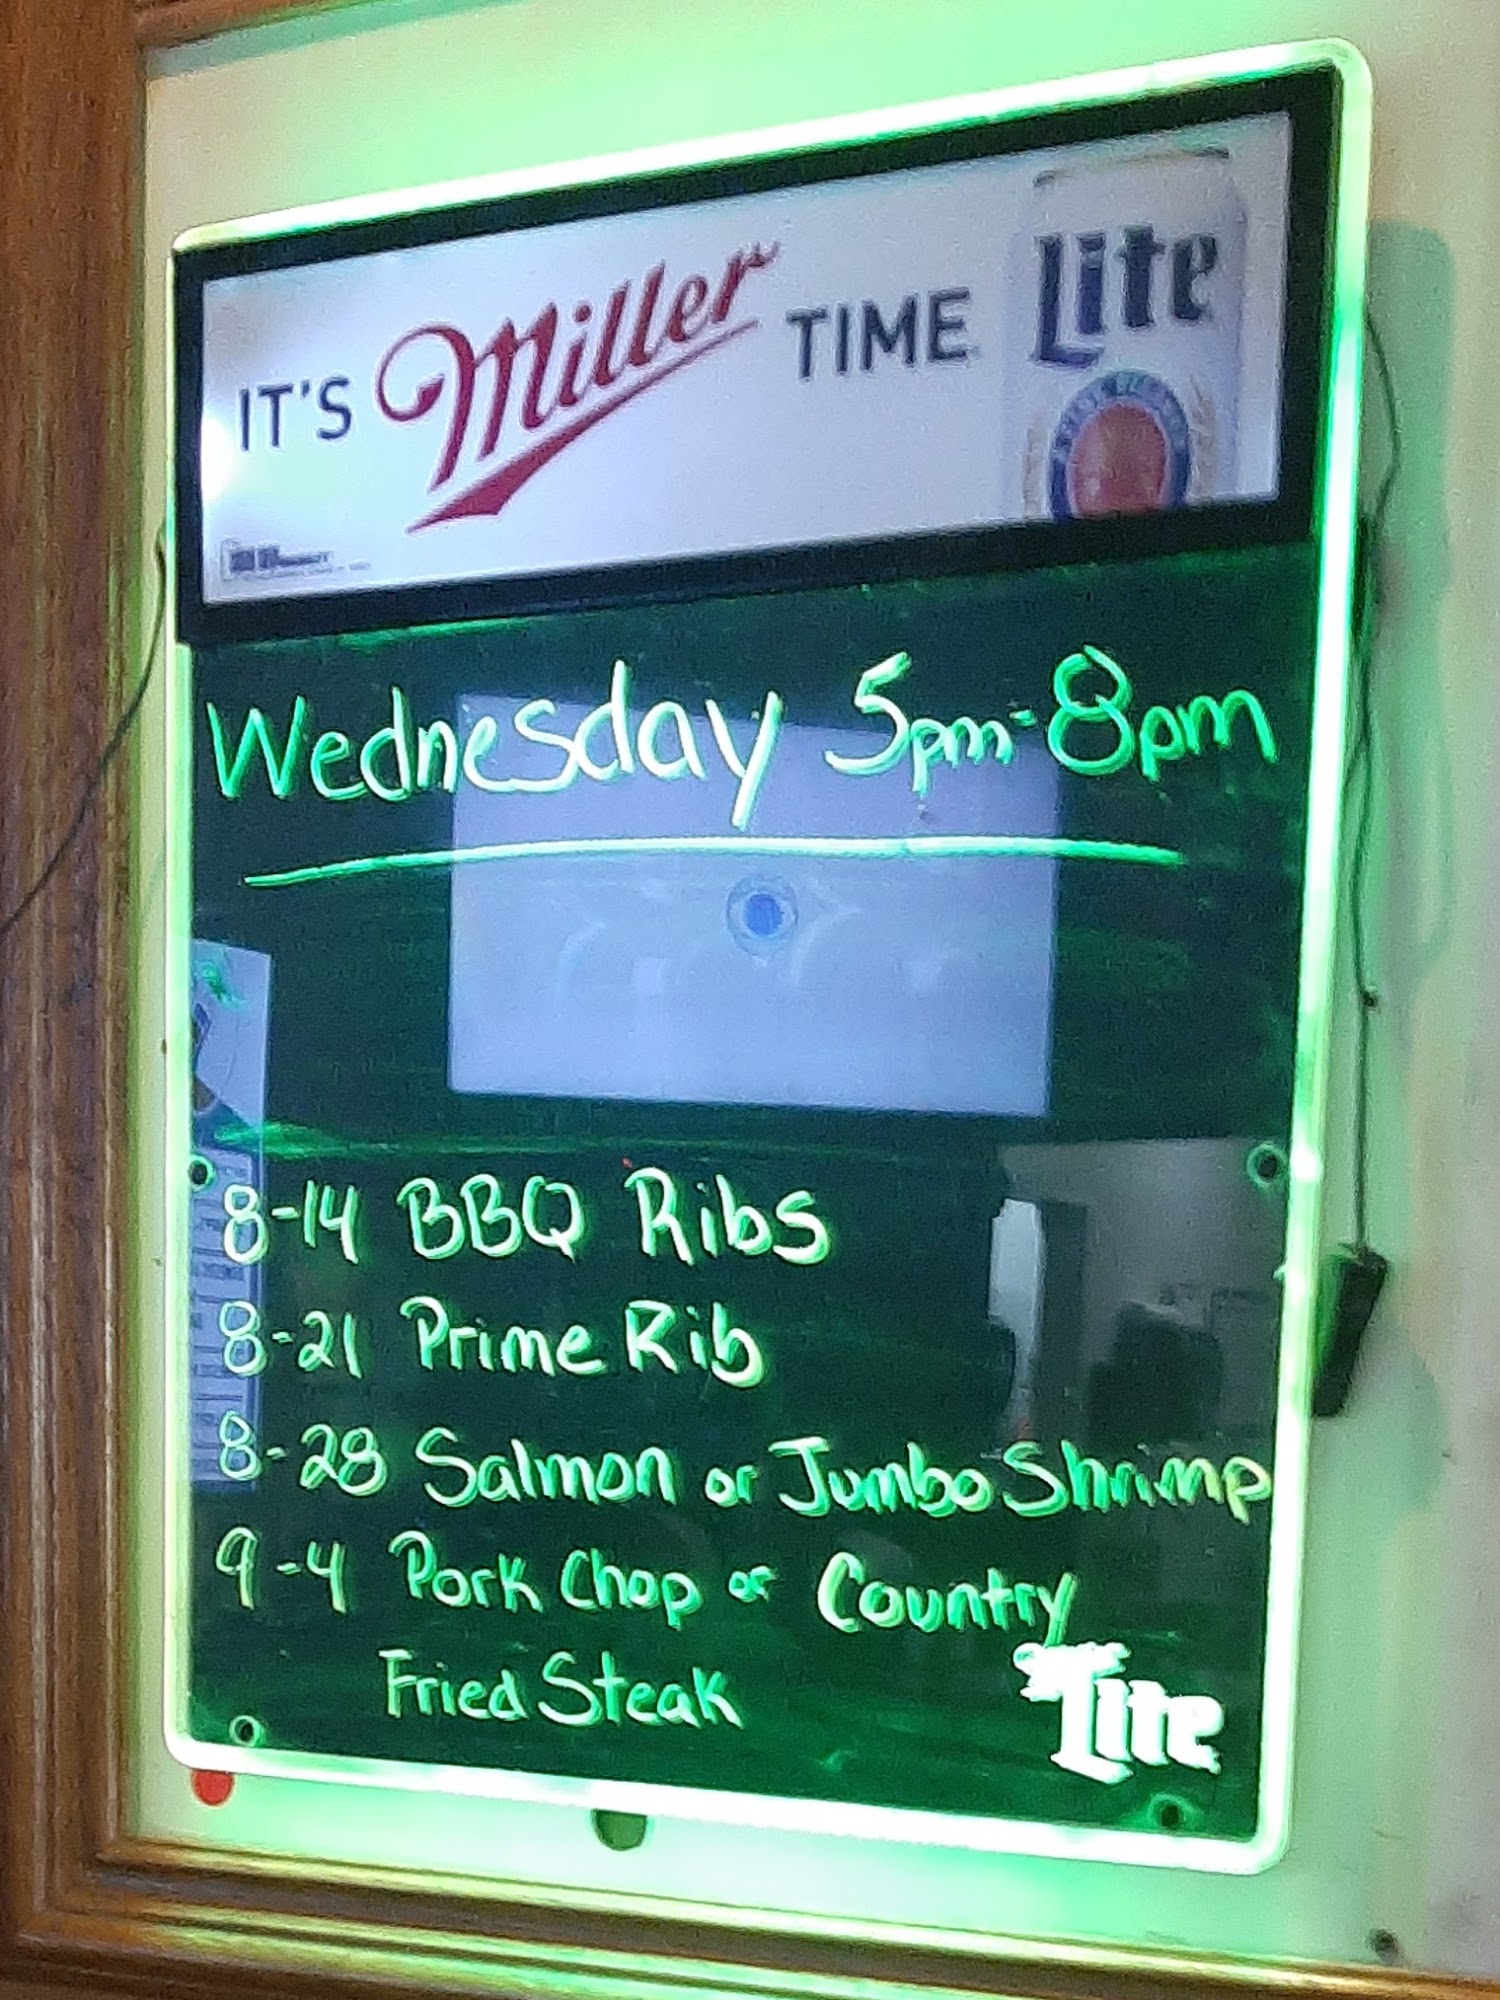 IT'S Miller TIME Lite
Wednesday 5pm-8pm
8-14 BBQ Ribs
8-21 Prime Rib
8-28 Salmon or Jumbo Shrimp
9-4 Pork Chop or Country
Fried Steak
Lite